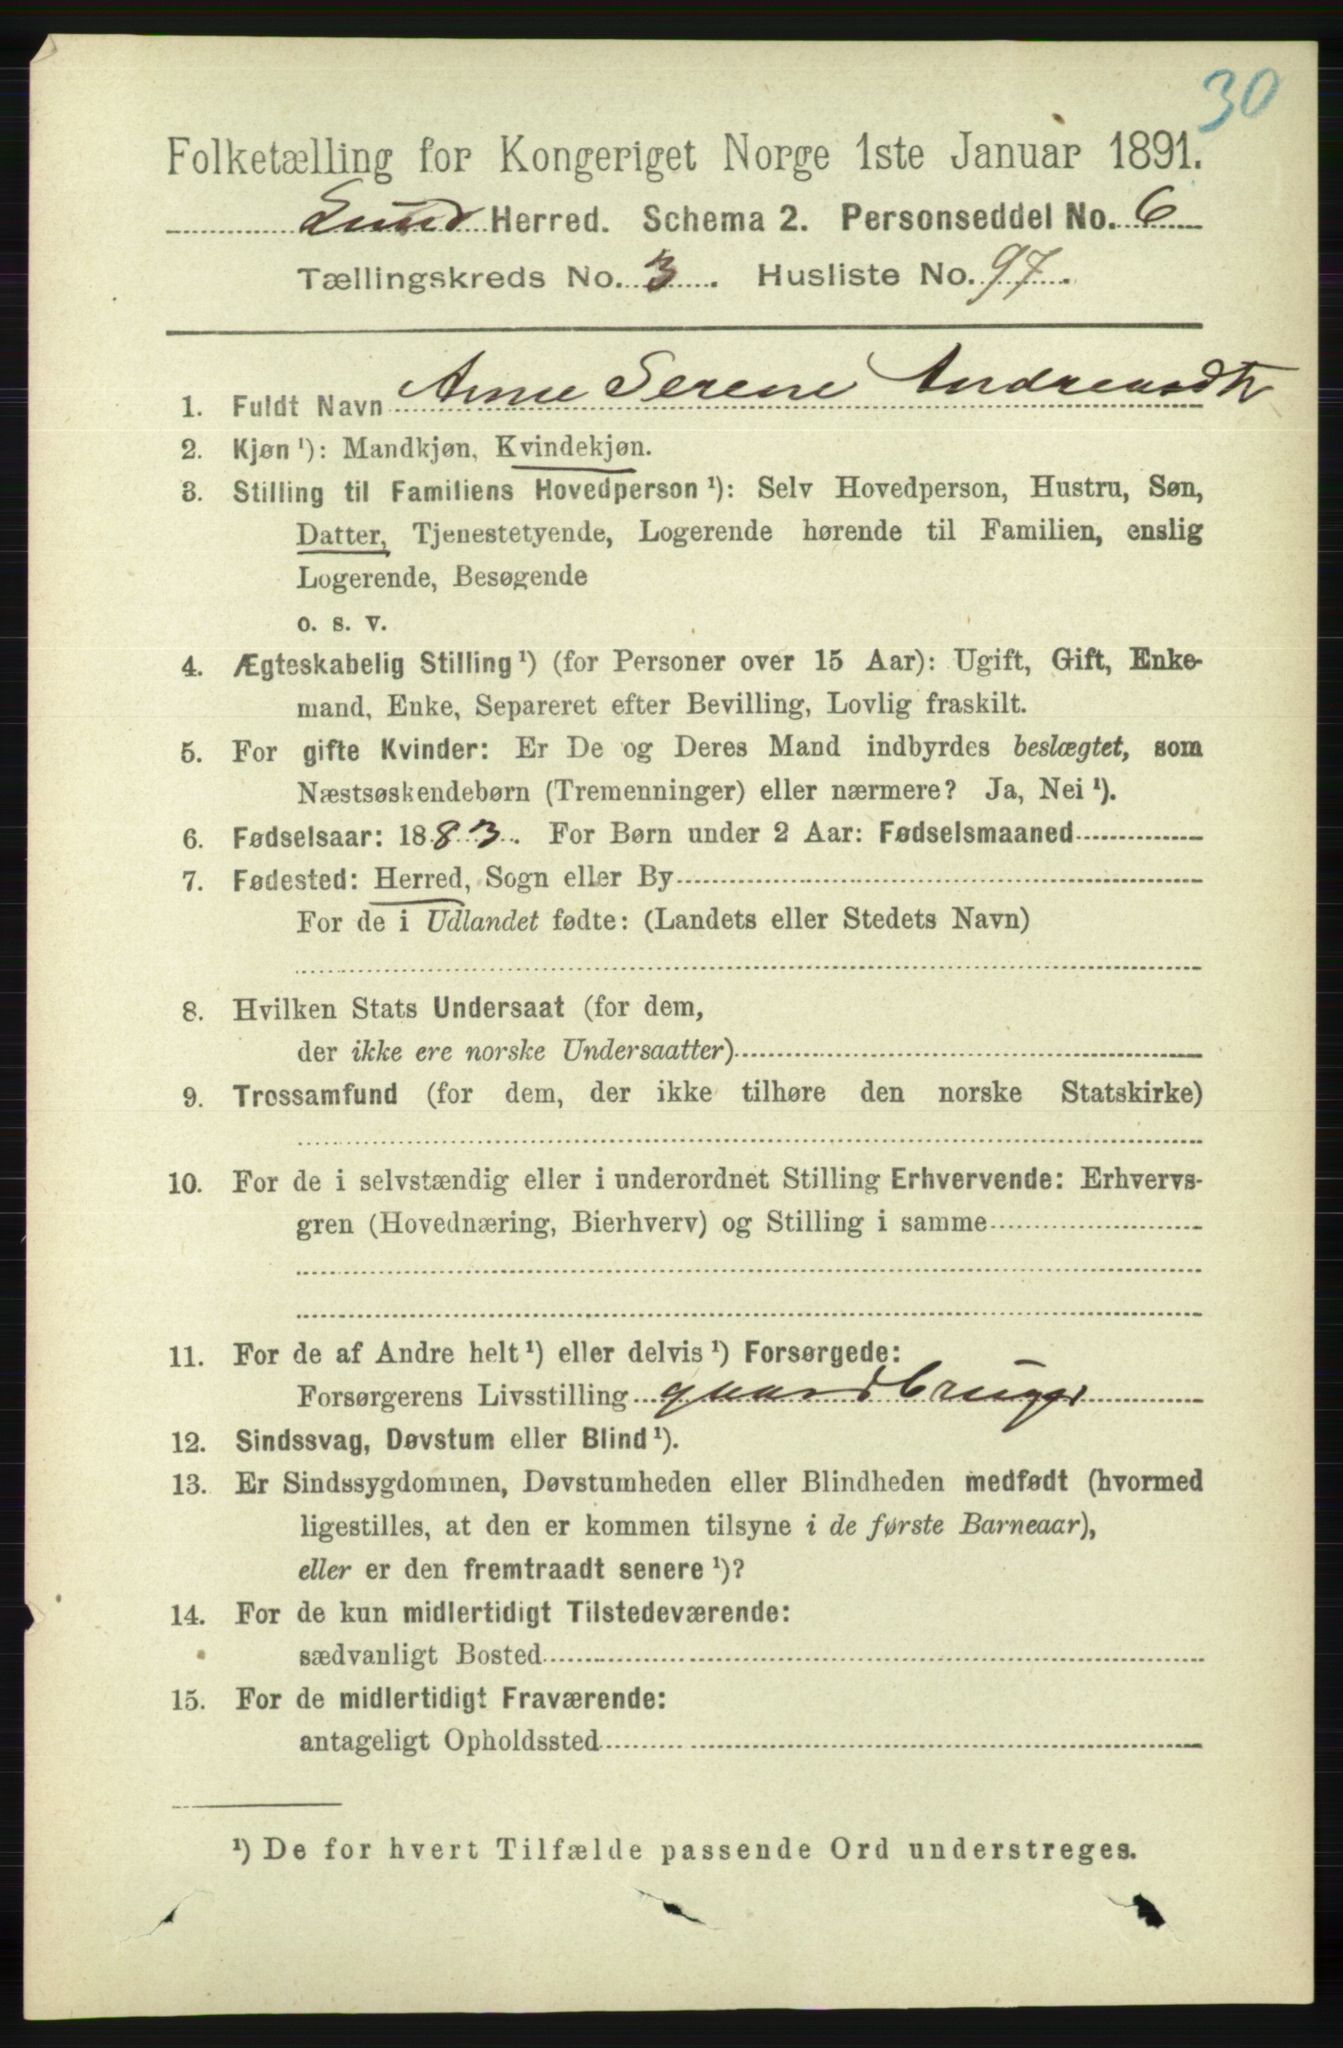 30
Folketælling for Kongeriget Norge 1ste Januar 1891.
Lund Herred. Schema 2. Personseddel No. 6
Tællingskreds No. 3. Husliste No. 97.
1. Fuldt Navn Anne Serene Andreasdtr
2. Kjøn ¹): Mandkjøn, Kvindekjøn.
3. Stilling til Familiens Hovedperson ¹): Selv Hovedperson, Hustru, Søn,
Datter, Tjenestetyende, Logerende hørende til Familien, enslig
Logerende, Besøgende
o. s. v.
4. Ægteskabelig Stilling ¹) (for Personer over 15 Aar): Ugift, Gift, Enke-
mand, Enke, Separeret efter Bevilling, Lovlig fraskilt.
5. For gifte Kvinder: Er De og Deres Mand indbyrdes beslægtet, som
Næstsøskendebørn (Tremenninger) eller nærmere? Ja, Nei ¹).
6. Fødselsaar: 1883. For Børn under 2 Aar: Fødselsmaaned
7. Fødested: Herred, Sogn eller By
For de i Udlandet fødte: (Landets eller Stedets Navn)
8. Hvilken Stats Undersaat (for dem,
der ikke ere norske Undersaatter)
9. Trossamfund (for dem, der ikke tilhøre den norske Statskirke)
10. For de i selvstændig eller i underordnet Stilling Erhvervende: Erhvervs-
gren (Hovednæring, Bierhverv) og Stilling i samme
11. For de af Andre helt ¹) eller delvis ¹) Forsørgede:
Forsørgerens Livsstilling gaardbruger
12. Sindssvag, Døvstum eller Blind ¹).
13. Er Sindssygdommen, Døvstumheden eller Blindheden medfødt (hvormed
ligestilles, at den er kommen tilsyne i de første Barneaar),
eller er den fremtraadt senere ¹)?
14. For de kun midlertidigt Tilstedeværende:
sædvanligt Bosted
15. For de midlertidigt Fraværende:
antageligt Opholdssted
¹) De for hvert Tilfælde passende Ord understreges.